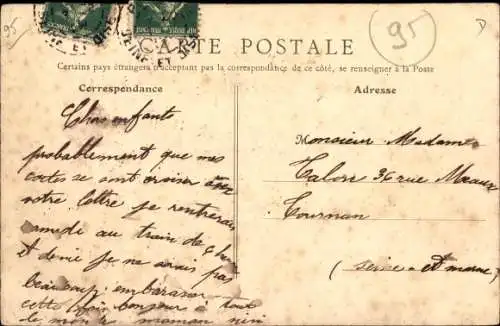 95
95
D
CARTE POSTALE
Certains pays étrangers n'acceptant pas la correspondance de ce côté, se renseigner à la Poste
Correspondance
Adresse
Chers enfants
probablement que mes
cartes se sont croiser avec
notre lettre je rentrerai
samedi au train de
et demie je ne serais pas
beaucoup embarasser
cette fois bonjour à tout
le monde maman nini
Monsieur Madame
Talon 36 rue Meaux
Tournan
(Seine et marne)